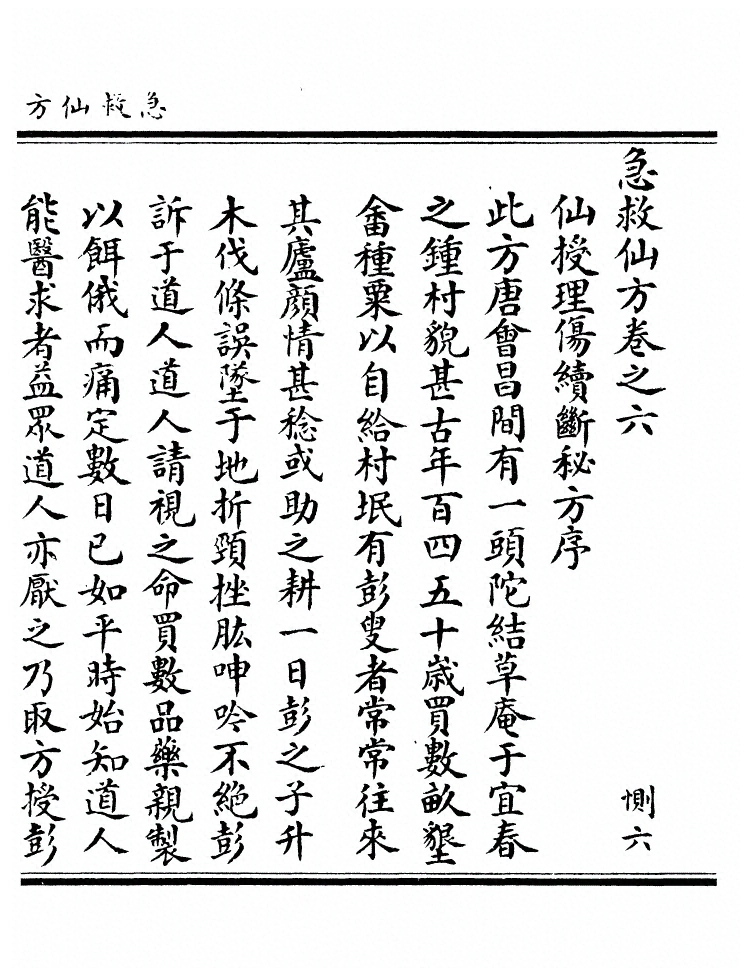 急救仙方
急救仙方卷之六
惻六
仙授理傷續斷秘方序
此方唐會昌間有一頭陀結草庵于宜春
之鍾村貌甚古年百四五十歲買數畝墾
畬種粟以自給村垊有彭叟者常常往來
其廬顔情甚稔或助之耕一日彭之子升
木伐條誤墜于地折頸挫肱呻吟不絶彭
訴于道人道人請視之命買數品藥親製
以餌俄而痛定數日已如平時始知道人
能醫求者益眾道人亦厭之乃取方授彭